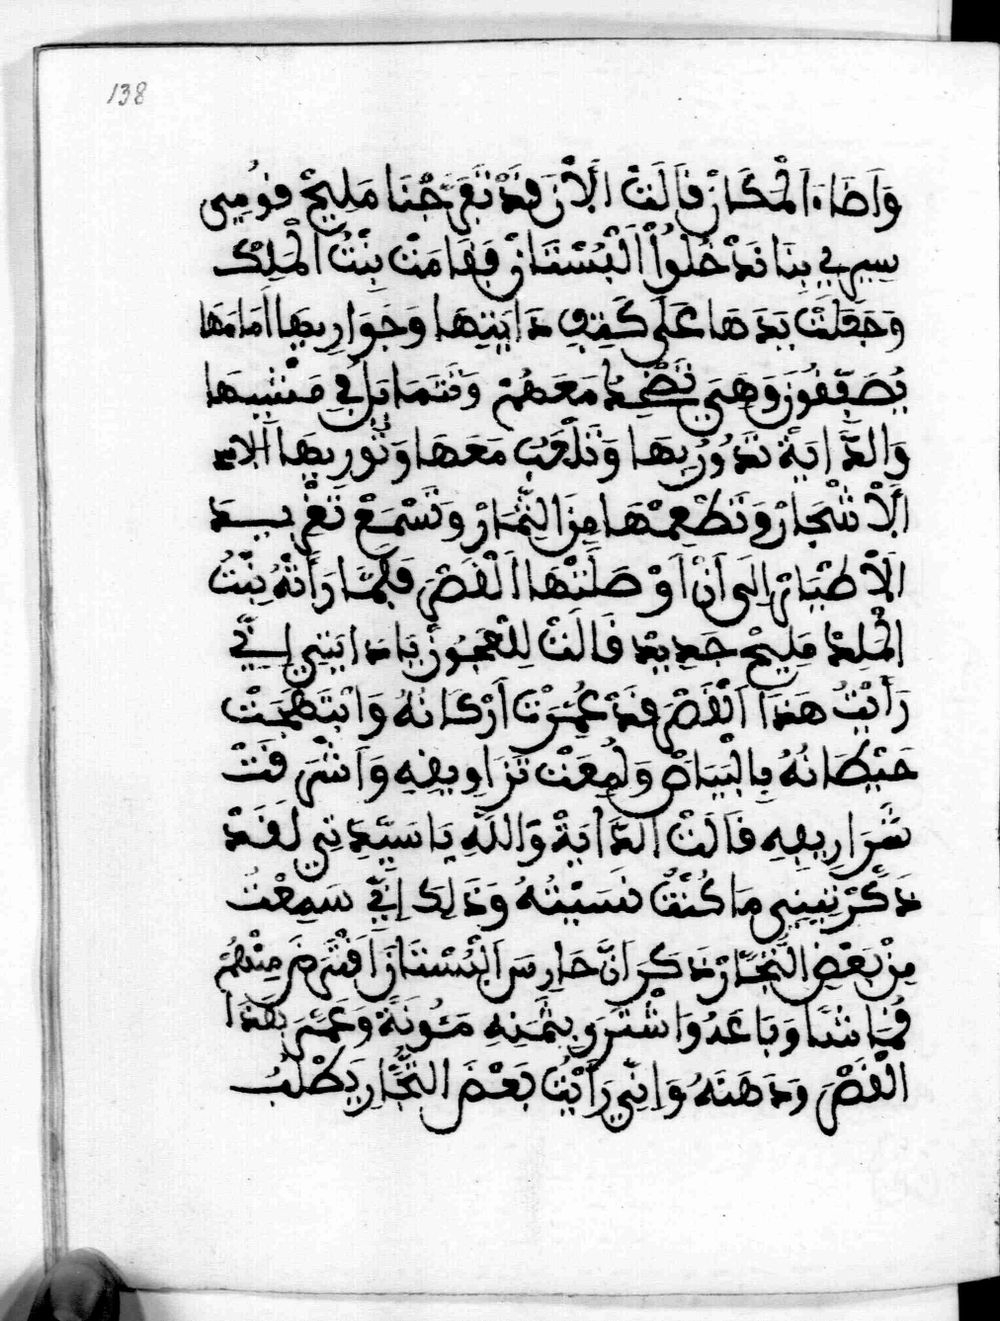 138
وَاَضَاءَ الْمَكَانْ فَالَتْ الْاَنْ قَدْ تَفَرَّجْنَا مَلِيحْ قُومِى
سِيرِي بِنَا نَدْخُلُواْ الْبُسْتَانْ فَقَامَتْ بِنْتُ الْمَلِكْ
وَجَعَلَتْ يَدَهَا عَلَى كَتِفِ دَايَتِهَا وَجَوَارِيهَا اَمَامَهَا
يُصَفِّقُونَ وَهِىَ تَضْحِكُ مَعَهُمْ وَتَتَمَايَلُ فِي مَشْيِهَا
وَالدَّايَةْ تَدُورُ بِهَا وَتَلْعَبُ مَعَهَا وَتُورِيهَا
الْاَشْجَارْ وَتَطْعِمْهَا مِنَ الثِّمَارْ وَتَسْمَعْ تَغْرِيـدَ
الْاَطْيَارْ اِلَى اَنْ اَوْصَلَتْهَا الْقَصْرَ فَلَمَّا رَأَتْهُ بِنْتُ
الْمَلِكْ مَلِيحْ جَدِيدْ قَالَتْ لِلْعَجُوزْ يَا دَايَتِي اِنِّي
رَأَيْتُ هَذَا الْقَصْرَ قَدْ عُمِّرَتْ اَرْكَانُهُ وَابْتَهَجَتْ
حَيْطَانُهُ بِالْبَيَاضْ وَلُمِعَتْ تَزَاوِيقِهِ وَاَشْرَقَتْ
شَرَارِيفِهِ قَالَتْ الدَّايَةْ وَاللَهِ يَا سَيِّدَتِي لَقَدْ
ذَكَّرْتِينِي مَا كُنْتُ نَسَيْتُهُ وَذَلِكَ اِنِّي سَمِعْتُ
مِنْ بَعْضِ التُّجَّارْ ذَكَرَ اَنَّ حَارِسَ الْبُسْتَانْ اَقْتَرَضَ مِنْهُمْ
قُمَاشًا وَبَاعَهُ وَاشْتَرَى بِثَمَنِهِ مَئُونَةْ وَعَمَّرَ بِهَذَا
الْقَصْرَ وَدَهَنَهُ وَاِنِّي رَأَيْتُ بَعْضَ التُّجَّارِ يَطْلُبُ